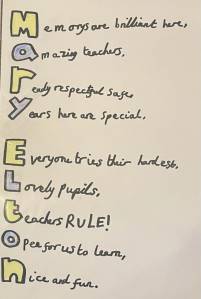 Memorys are brilliant here,
amazing teachers,
ready respectful safe,
years here are special.
Everyone tries their hardest,
Lovely Pupils,
teachers RULE!
Open for us to learn,
nice and fun.